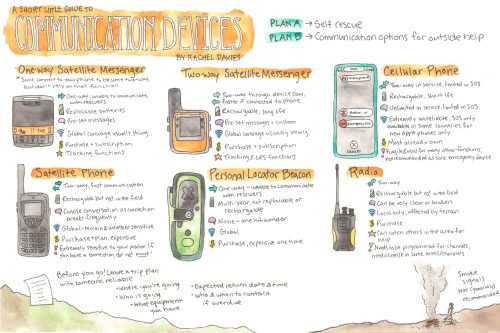 A SHORT LITTLE GUIDE TO
COMMUNICATION DEVICES
BY RACHEL DAVIES
PLAN A → Self rescue
PLAN B → Communication options for outside help
One-way Satellite Messenger
*Some connect to your phone to become two-way
but don't rely on that function
One-way - unable to communicate
with rescuers
Replaceable batteries
Pre-set messages
Global coverage usually strong
Purchase + subscription
Tracking functions
Two-way Satellite Messenger
Two-way through device slow,
faster if connected to phone
Rechargeable, long life
Pre-set messages + custom
Global coverage usually strong
Purchase + subscription
Tracking & GPS functions
Cellular Phone
Emergency SOS
CANCEL
Two-way in service, limited in SOS
Rechargeable, short life
Unlimited in service, limited in SOS
Extremely unreliable, SOS only
available in some countries for
new Apple phones only
Most already own
Fragile, used for many other functions,
not recommended as sole emergency device
Satellite Phone
Two-way, fast communication
Rechargeable but not in the field
Concise conversation as connection
breaks frequently
Global - terrain & weather sensitive
Purchase + plan, expensive
Extremely sensitive to your position if
you have a connection, do not move!
Personal Locator Beacon
One-way - unable to communicate
with rescuers
Multi-year, not replaceable or
rechargeable
None - one hit wonder
Global
Purchase, expensive one time
Radio
Two-way
Rechargeable but not in the field
Can be very clear or broken
Local only, affected by terrain
Purchase
Can catch others in the area for
help!
Needs to be programmed for channels,
need a license in some areas/channels
Before you go! Leave a trip plan
with someone reliable
• Where you're going
• Who is going
• What equipment
you have
• Expected return date & time
• Who & when to contact
if overdue
Smoke
signals
poor (generally)
recommended